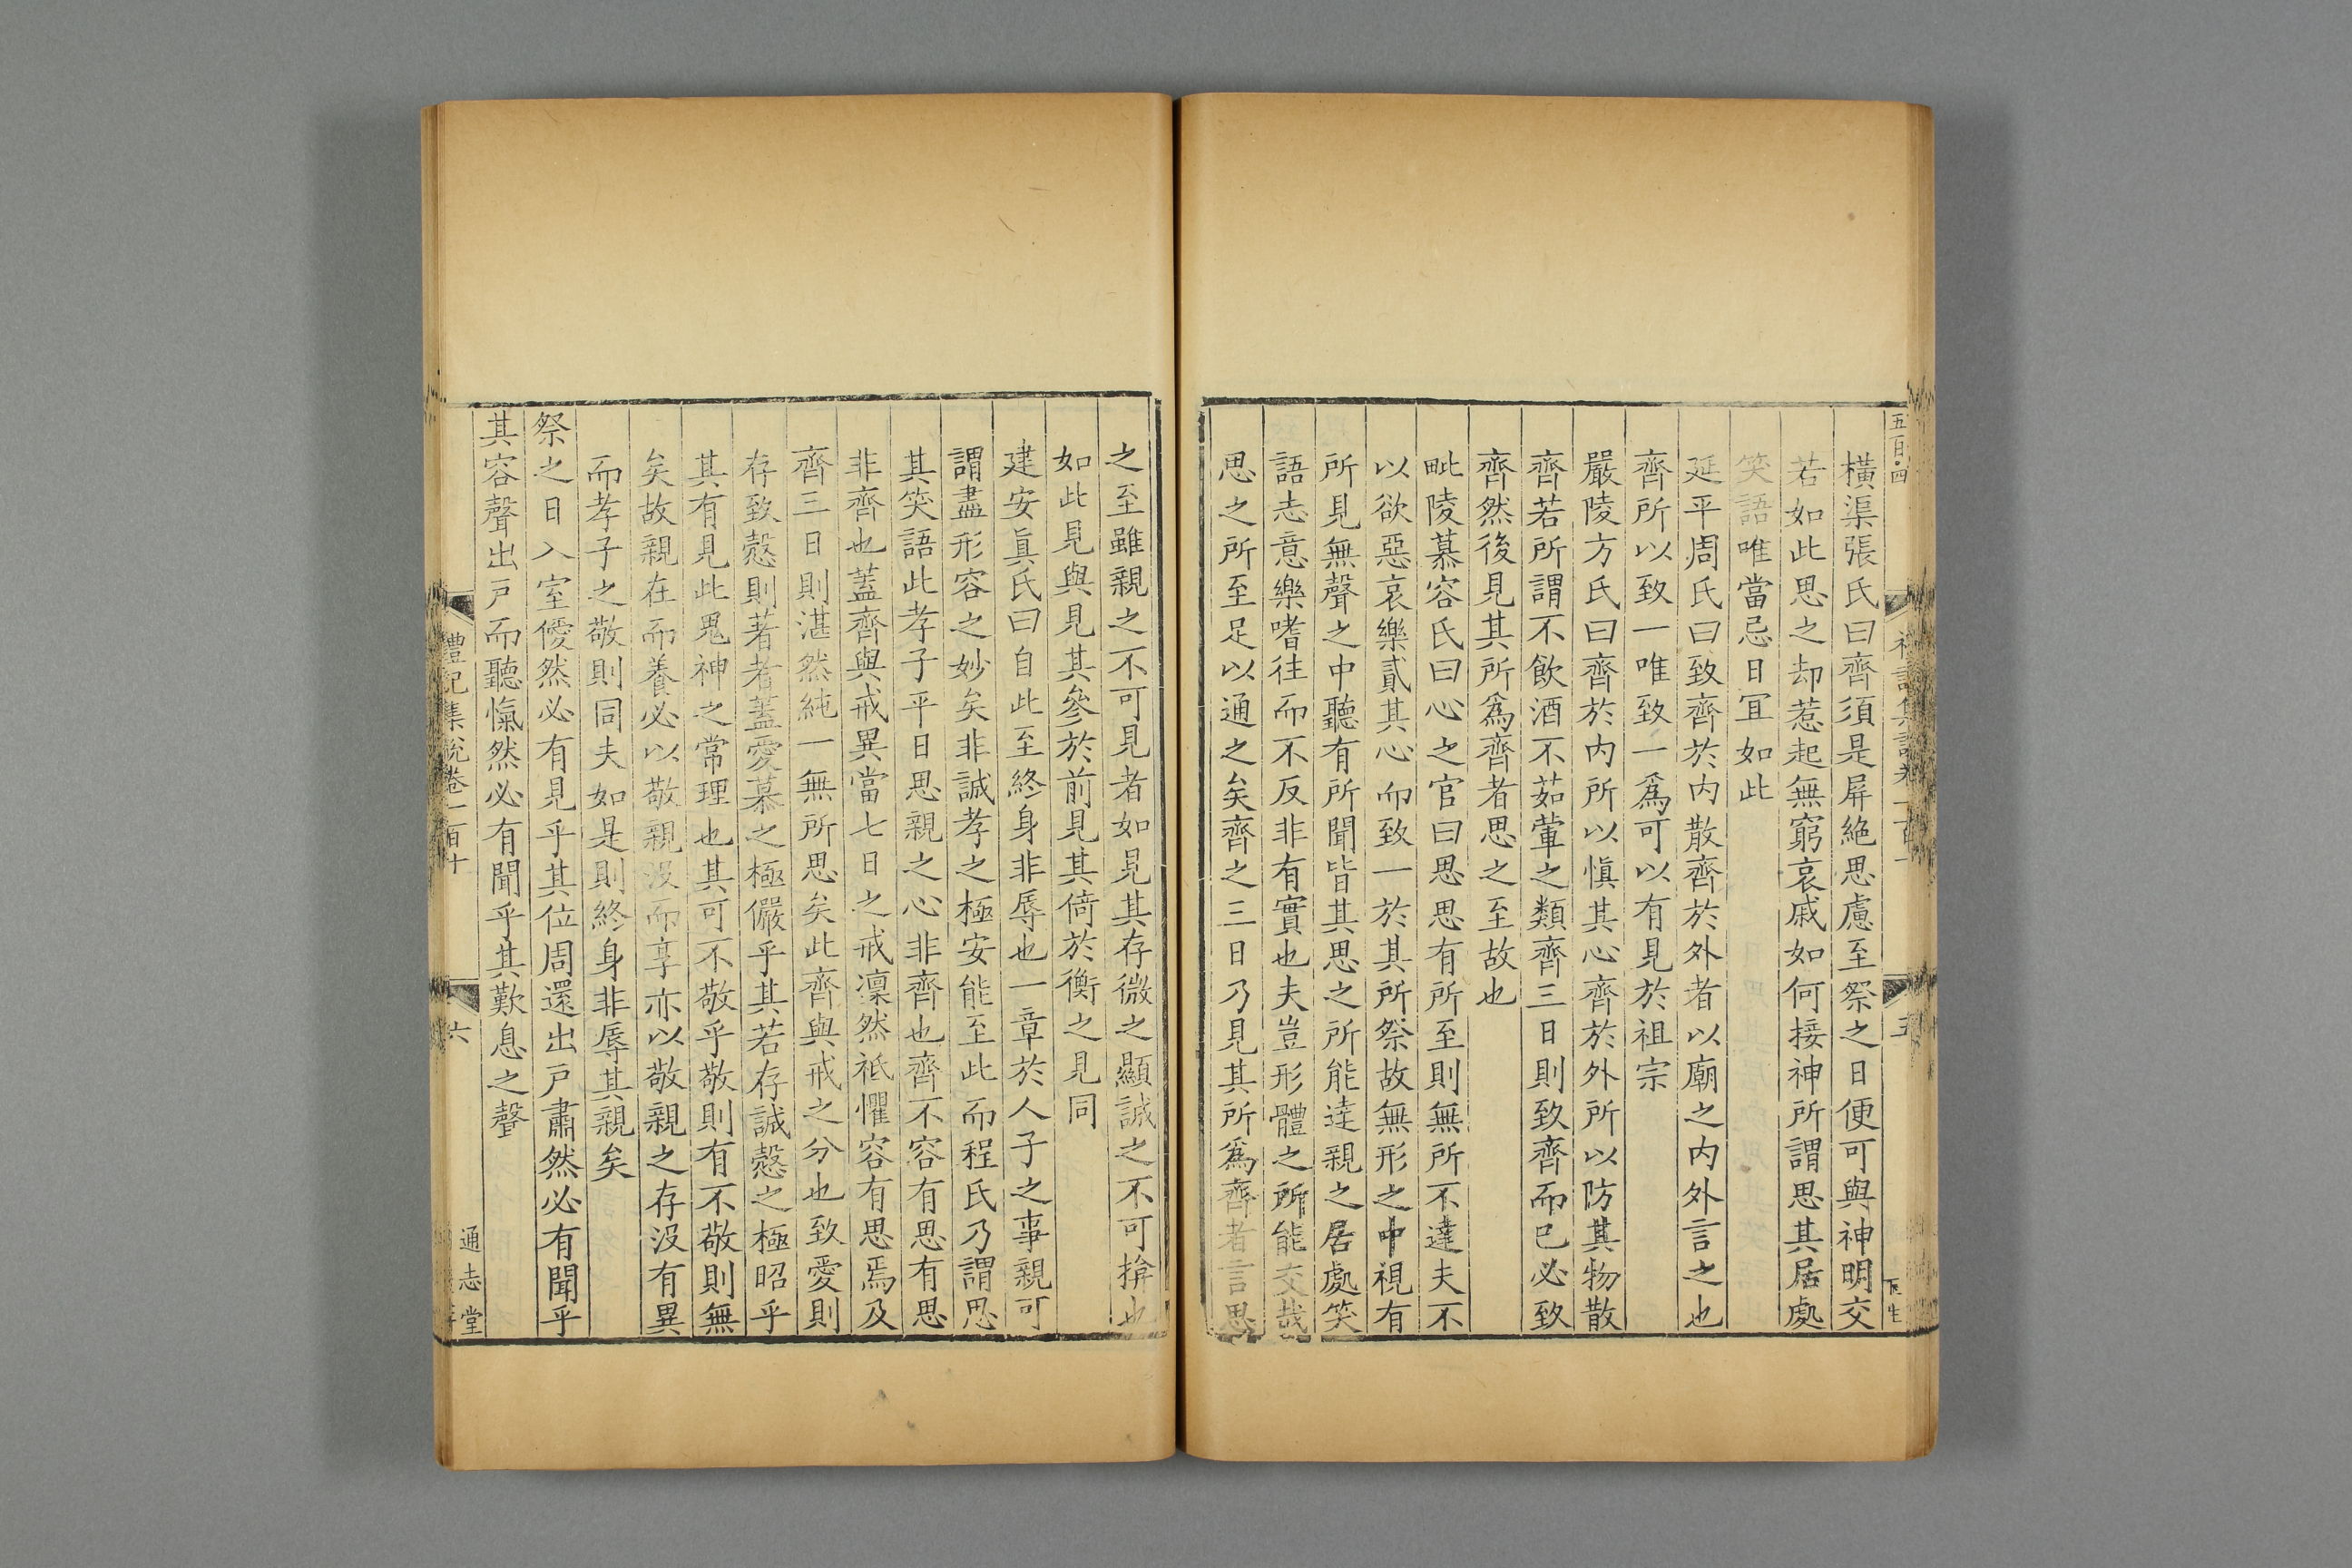 五百四
橫渠張氏曰齊須是屏絶思慮至祭之日便可與神明交
若如此思之却惹起無窮哀戚如何接神所謂思其居處
笑語唯當忌日宜如此
延平周氏曰致齊於内散齊於外者以廟之内外言之也
齊所以致一唯致一爲可以有見於祖宗
嚴陵方氏曰齊於内所以愼其心齊於外所以防其物散
齊若所謂不飲酒不茹葷之類齊三日則致齊而已必致
齊然後見其所爲齊者思之至故也
毗陵慕容氏曰心之官曰思思有所至則無所不達夫不
以欲惡哀樂貳其心而致一於其所祭故無形之中視有
所見無聲之中聽有所聞皆其思之所能逹親之居處笑
語志意樂嗜往而不反非有實也夫豈形體之所能交哉
思之所至足以通之矣齊之三日乃見其所爲齊者言思
之至雖親之不可見者如見其存微之顯誠之不可揜也
如此見與見其參於前見其倚於衡之見同
建安眞氏曰自此至終身非辱也一章於人子之事親可
謂盡形容之妙矣非誠孝之極安能至此而程氏乃謂思
其笑語此孝子平日思親之心非齊也齊不容有思有思
非齊也蓋齊與戒異當七日之戒凜然祗懼容有思焉及
齊三日則湛然純一無所思矣此齊與戒之分也致愛則
存致慤則著者蓋愛慕之極儼乎其若存誠慤之極昭乎
其有見此鬼神之常理也其可不敬乎敬則有不敬則無
矣故親在而養必以敬親沒而享亦以敬親之存沒有異
而孝子之敬則同夫如是則終身非辱其親矣
祭之日入室僾然必有見乎其位周還出戸肅然必有聞乎
其容聲出戸而聽愾然必有聞乎其歎息之聲
禮記集說卷一百十
六
通志堂